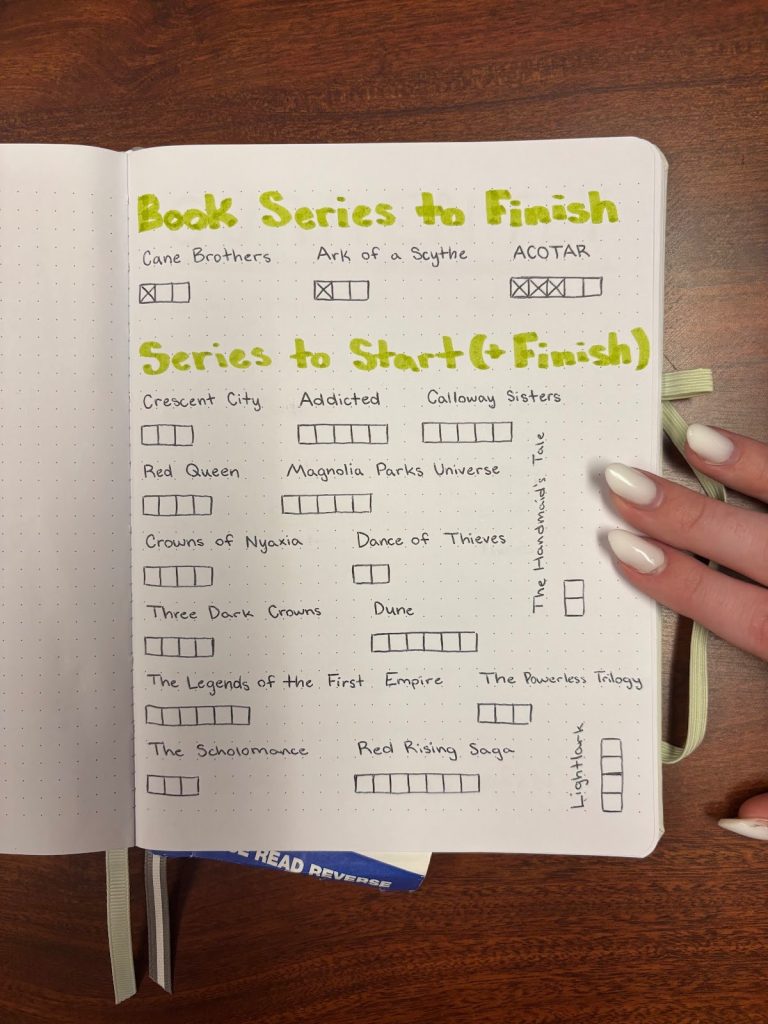 Book Series to Finish
Cane Brothers Ark of a Scythe ACOTAR
Series to Start (+ Finish)
Crescent City Addicted Calloway Sisters
Red Queen Magnolia Parks Universe
The Handmaid's Tale
Crowns of Nyaxia Dance of Thieves
Three Dark Crowns Dune
The Legends of the First Empire The Powerless Trilogy
The Scholomance Red Rising Saga
Lightlark
READ REVERSE